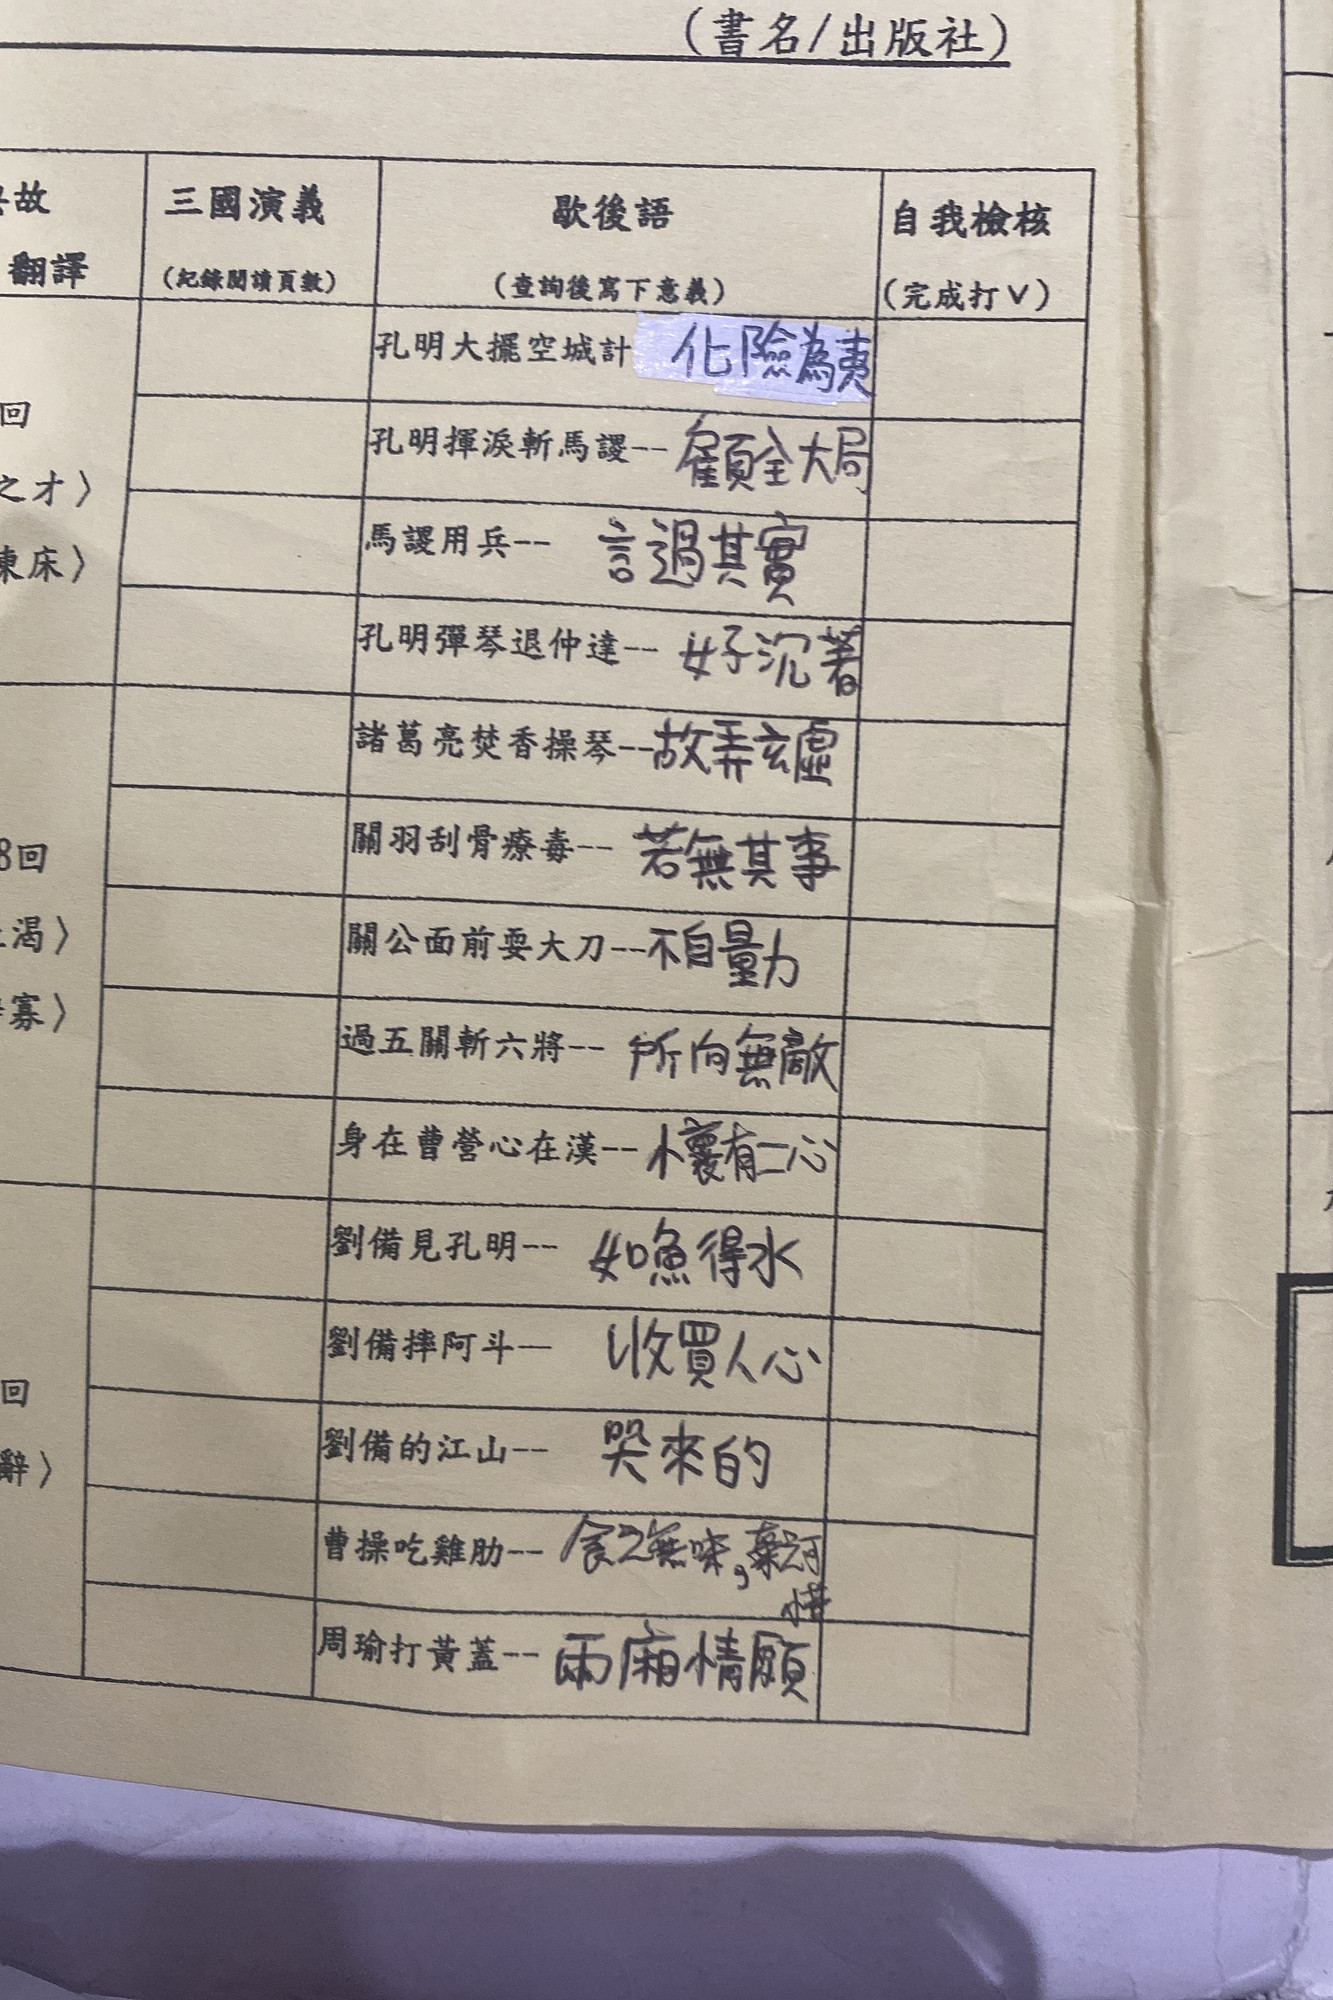 (書名/出版社)
故
翻譯
三國演義
(紀錄閱讀頁數)
歇後語
(查詢後寫下意義)
自我檢核
(完成打V)
回
之才〉
東床〉
8回
渴〉
寡〉
回
辭〉
孔明大擺空城計 化險為夷
孔明揮淚斬馬謖--顧全大局
馬謖用兵-- 言過其實
孔明彈琴退仲達-- 好沉著
諸葛亮焚香操琴--故弄玄虛
關羽刮骨療毒-- 若無其事
關公面前耍大刀--不自量力
過五關斬六將-- 所向無敵
身在曹營心在漢--懷有二心
劉備見孔明-- 如魚得水
劉備摔阿斗-- 收買人心
劉備的江山-- 哭來的
曹操吃雞肋-- 食之無味,棄之可
惜
周瑜打黃蓋-- 兩廂情願